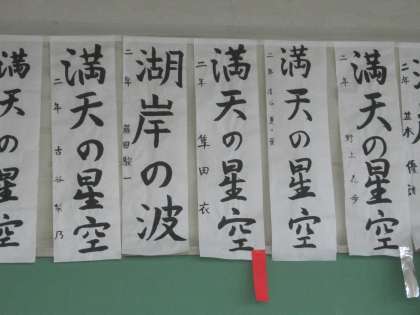 満天の星空
二年
満天の星空
二年 古谷梨乃
湖岸の波
二年 藤田駿一
満天の星空
二年 隼田衣
満天の星空
二年
満天の星空
二年 野上
二年